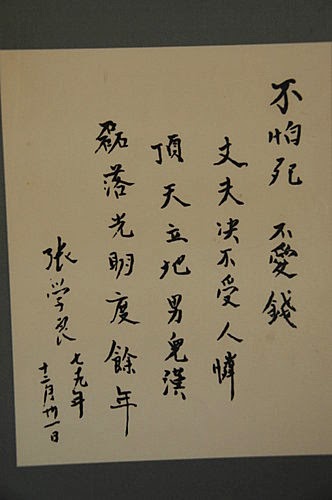 不怕死 不愛錢
丈夫决不受人憐
頂天立地男兒漢
磊落光明度餘年
張学良
七九年
十二月卅一日